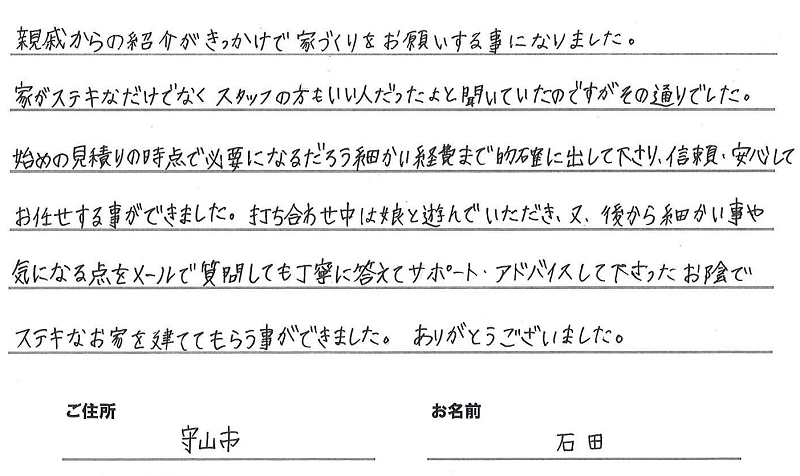 親戚からの紹介がきっかけで家づくりをお願いする事になりました。
家がステキなだけでなくスタッフの方もいい人だったよと聞いていたのですがその通りでした。
始めの見積りの時点で必要になるだろう細かい経費まで的確に出して下さり、信頼・安心して
お任せする事ができました。打ち合わせ中は娘と遊んでいただき、又、後から細かい事や
気になる点をメールで質問しても丁寧に答えてサポート・アドバイスして下さったお陰で
ステキなお家を建ててもらう事ができました。 ありがとうございました。
ご住所 お名前
守山市 石田